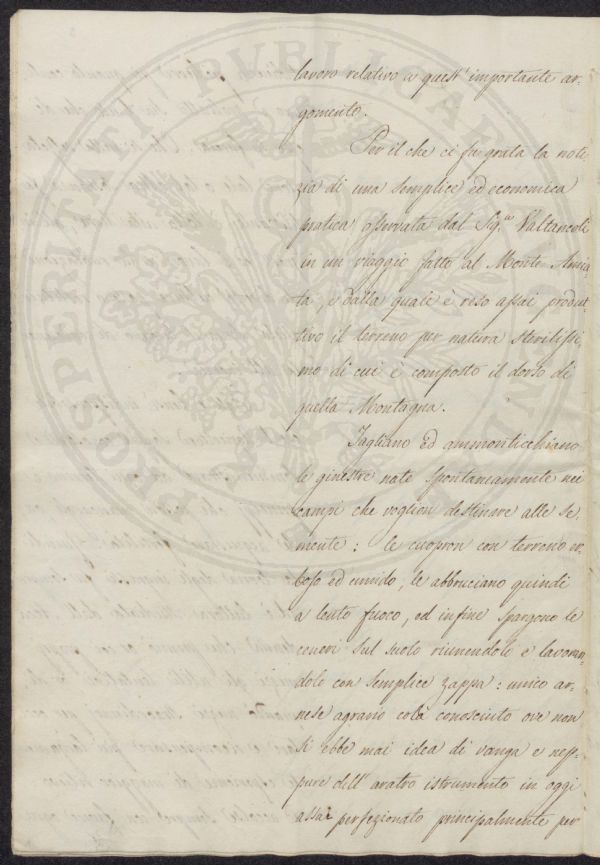 lavoro relativo a quest' importante ar-
gomento.
Per il che ci fu grata la noti-
zia di una semplice ed economica
pratica osservata dal Sig.re Valtancoli
in un viaggio fatto al Monte Amia
ta, e dalla quale è reso assai produt-
tivo il terreno per natura sterilissi-
mo di cui è composto il dorso di
quella Montagna.
Tagliano ed ammonticchiano
le ginestre nate spontaneamente nei
campi che voglion destinare alle se-
mente: le cuopron con terreno er-
boso ed umido, le abbruciano quindi
a lento fuoco, ed infine spargono le
ceneri sul suolo riunendole e lavoran-
dole con semplice zappa: unico ar-
nese agrario colà conosciuto ove non
si ebbe mai idea di vanga e nep-
pure dell' aratro istrumento in oggi
assai perfezionato principalmente per
PROSPERITATI PVBLICAE